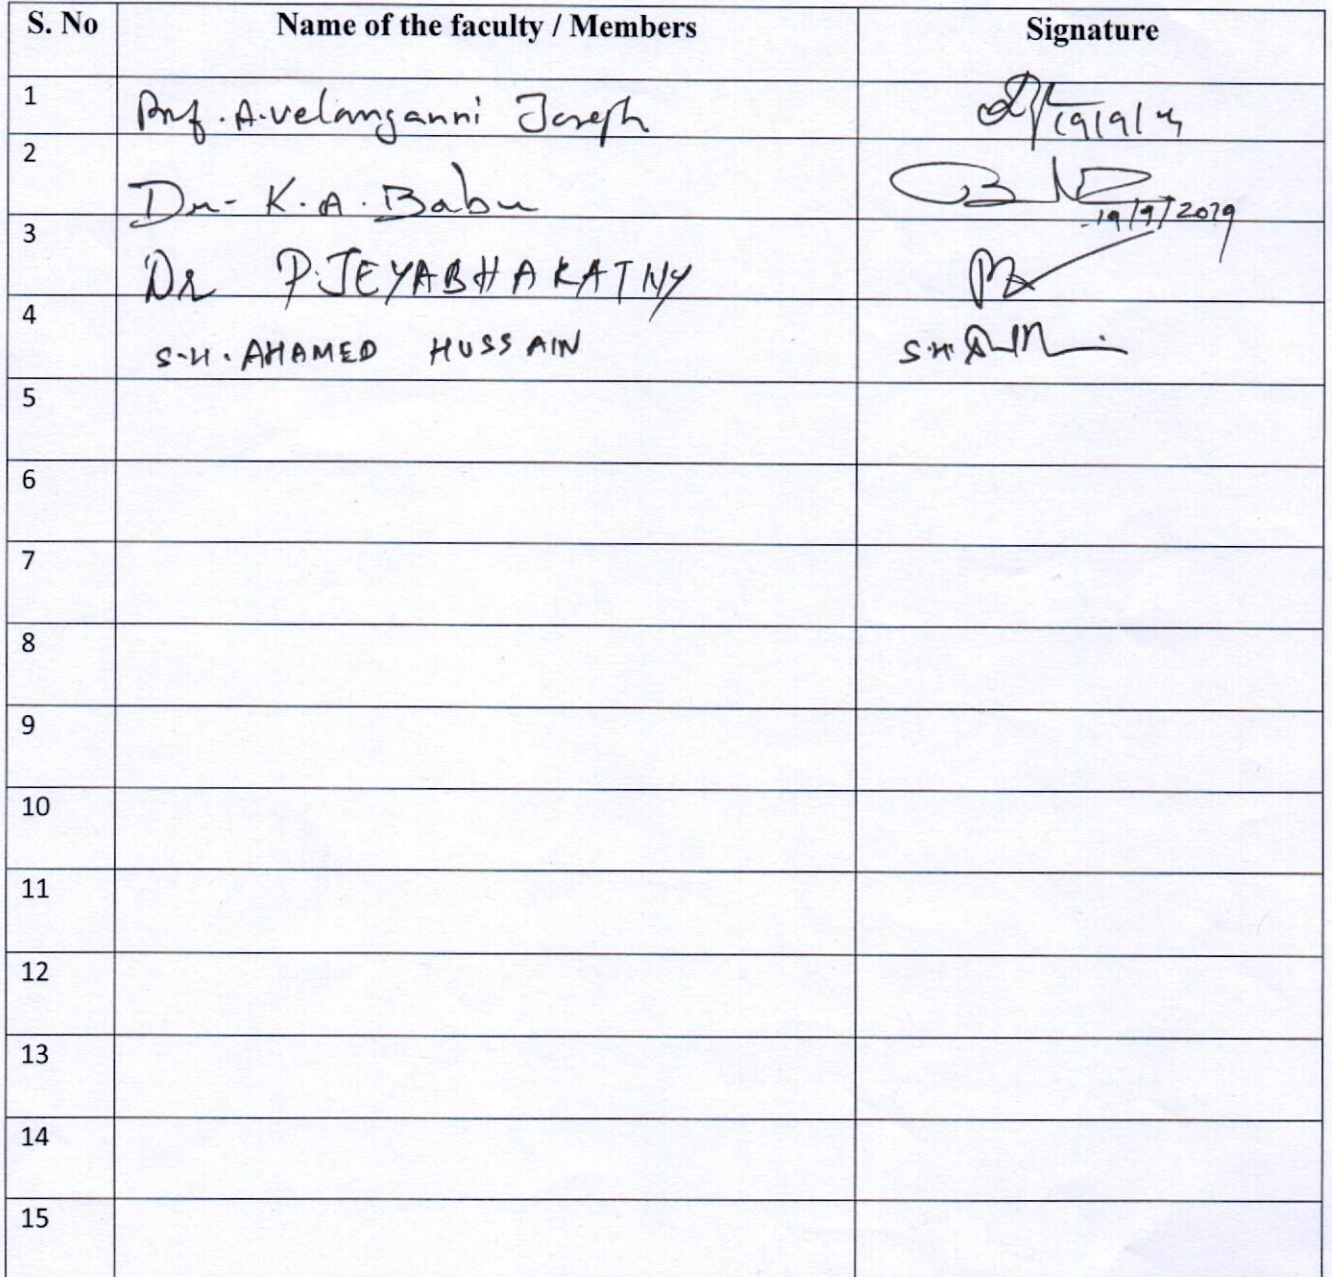 S. No Name of the faculty / Members Signature
1 Prof. A. Velanganni Joseph 19/9/19
2 Dr. K. A. Babu 19/9/2019
3 Dr P. JEYABHARATHY
4 S.H. AHAMED HUSSAIN S.H.
5
6
7
8
9
10
11
12
13
14
15